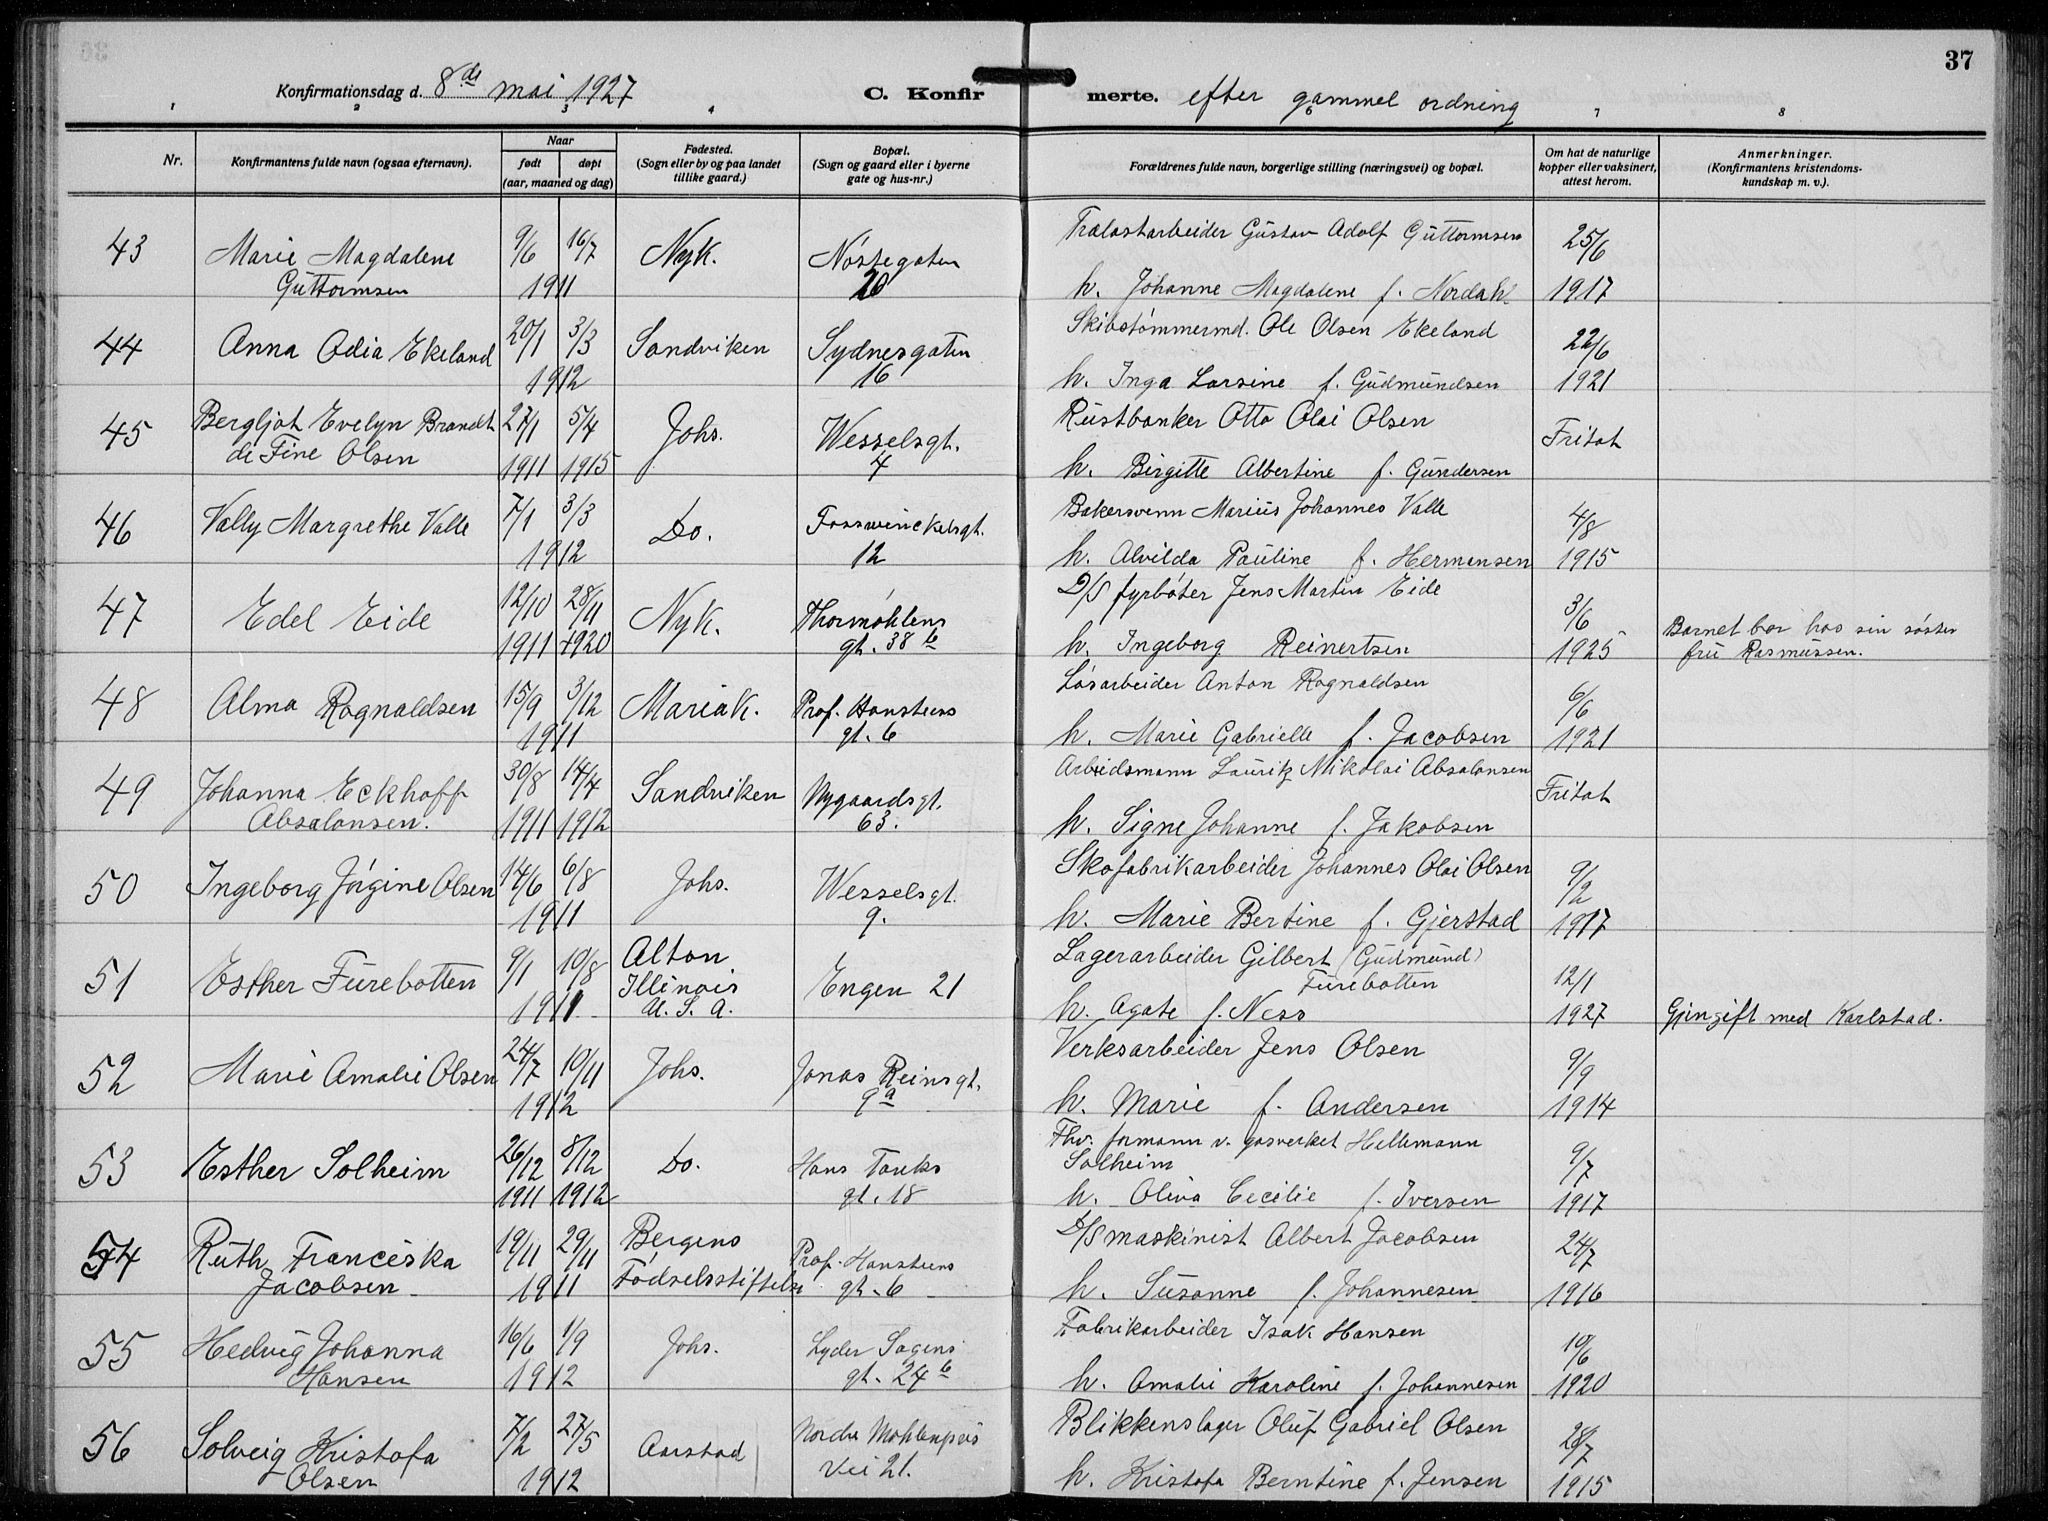 37
Konfirmationsdag d. 8de mai 1927 C. Konfirmerte. efter gammel ordning
1 2 3 4 6 7 8
Nr. Konfirmantens fulde navn (ogsaa efternavn). Naar født døpt (aar, maaned og dag) Fødested. (Sogn eller by og paa landet tillike gaard.) Bopæl. (Sogn og gaard eller i byerne gate og hus-nr.) Forældrenes fulde navn, borgerlige stilling (næringsvei) og bopæl. Om hat de naturlige kopper eller vaksinert, attest herom. Anmerkninger. (Konfirmantens kristendomskundskap m. v.).
43 Marie Magdalene 9/6 16/7 Nyk. Nøstegaten Trælastarbeider Gustav Adolf Guttormsen 25/6
Guttormsen 1911 20 h. Johanne Magdalene f. Nordahl 1917
44 Anna Odia Ekeland 20/1 3/3 Sandviken Sydnesgaten Skibstømmermd. Ole Olsen Ekeland 22/6
1912 16 h. Inga Larsine f. Gudmundsen 1921
45 Bergljot Evelyn Brandt 27/1 5/4 Johs. Wesselsgt. Rustbanker Otto Olai Olsen Fritat
de Fine Olsen 1911 1915 4 h. Birgitte Albertine f. Gundersen
46 Vally Margrethe Valle 7/1 3/3 Do. Fosswinckelsgt. Bakersvenn Marius Johannes Valle 4/8
1912 12 h. Alvilda Pauline f. Hermansen 1915
47 Edel Eide 12/10 28/11 Nyk. Thormøhlens D/S fyrbøter Jens Martin Eide 3/6
1911 1920 gt. 38b h. Ingeborg Reinertsen 1925 Barnet bor hos sin søster
fru Rasmussen.
48 Alma Rognaldsen 15/9 3/12 Mariak. Prof. Hansteens Løsarbeider Anton Rognaldsen 6/6
1911 gt. 6 h. Marie Gabrielle f. Jacobsen 1921
49 Johanna Eckhoff 30/8 14/4 Sandviken Nygaardsgt. Arbeidsmann Lauritz Mikolai Absalonsen Fritat
Absalonsen. 1911 1912 63. h. Signe Johanne f. Jakobsen
50 Ingeborg Jørgine Olsen 14/6 6/8 Johs. Wesselsgt. Skofabrikarbeider Johannes Olai Olsen 9/2
1911 9. h. Marie Bertine f. Gjerstad 1917
51 Esther Furebotten 9/1 10/8 Alton Illinois Engen 21 Lagerarbeider Gilbert (Gudmund) Furebotten 12/1
1911 U. S. A. h. Agate f. Ness 1927 Gjengift med Karlstad.
52 Marie Amalie Olsen 24/7 10/11 Johs. Jonas Reinsgt. Verksarbeider Jens Olsen 9/9
1912 9a h. Marie f. Andersen 1914
53 Esther Solheim 26/12 8/12 Do. Hans Tanks Fhv. formann v. gasverket Hellemann Solheim 9/7
1911 1912 gt. 18 h. Oliva Cecilie f. Iversen 1917
54 Ruth Franceska 19/11 29/11 Bergens Prof. Hansteens D/S maskinist Albert Jacobsen 24/7
Jacobsen 1911 Fødselsstiftelse gt. 6 h. Susanne f. Johannesen 1916
55 Hedvig Johanna 16/6 1/9 Johs. Lyder Sagens Fabrikarbeider Isak Hansen 10/6
Hansen 1912 gt. 24b h. Amalie Karoline f. Johannesen 1920
56 Solveig Kristofa 7/2 27/5 Aarstad Nordre Møhlenpris Blikkenslager Oluf Gabriel Olsen 28/7
Olsen 1912 Vei 21. h. Kristofa Berntine f. Jensen 1915